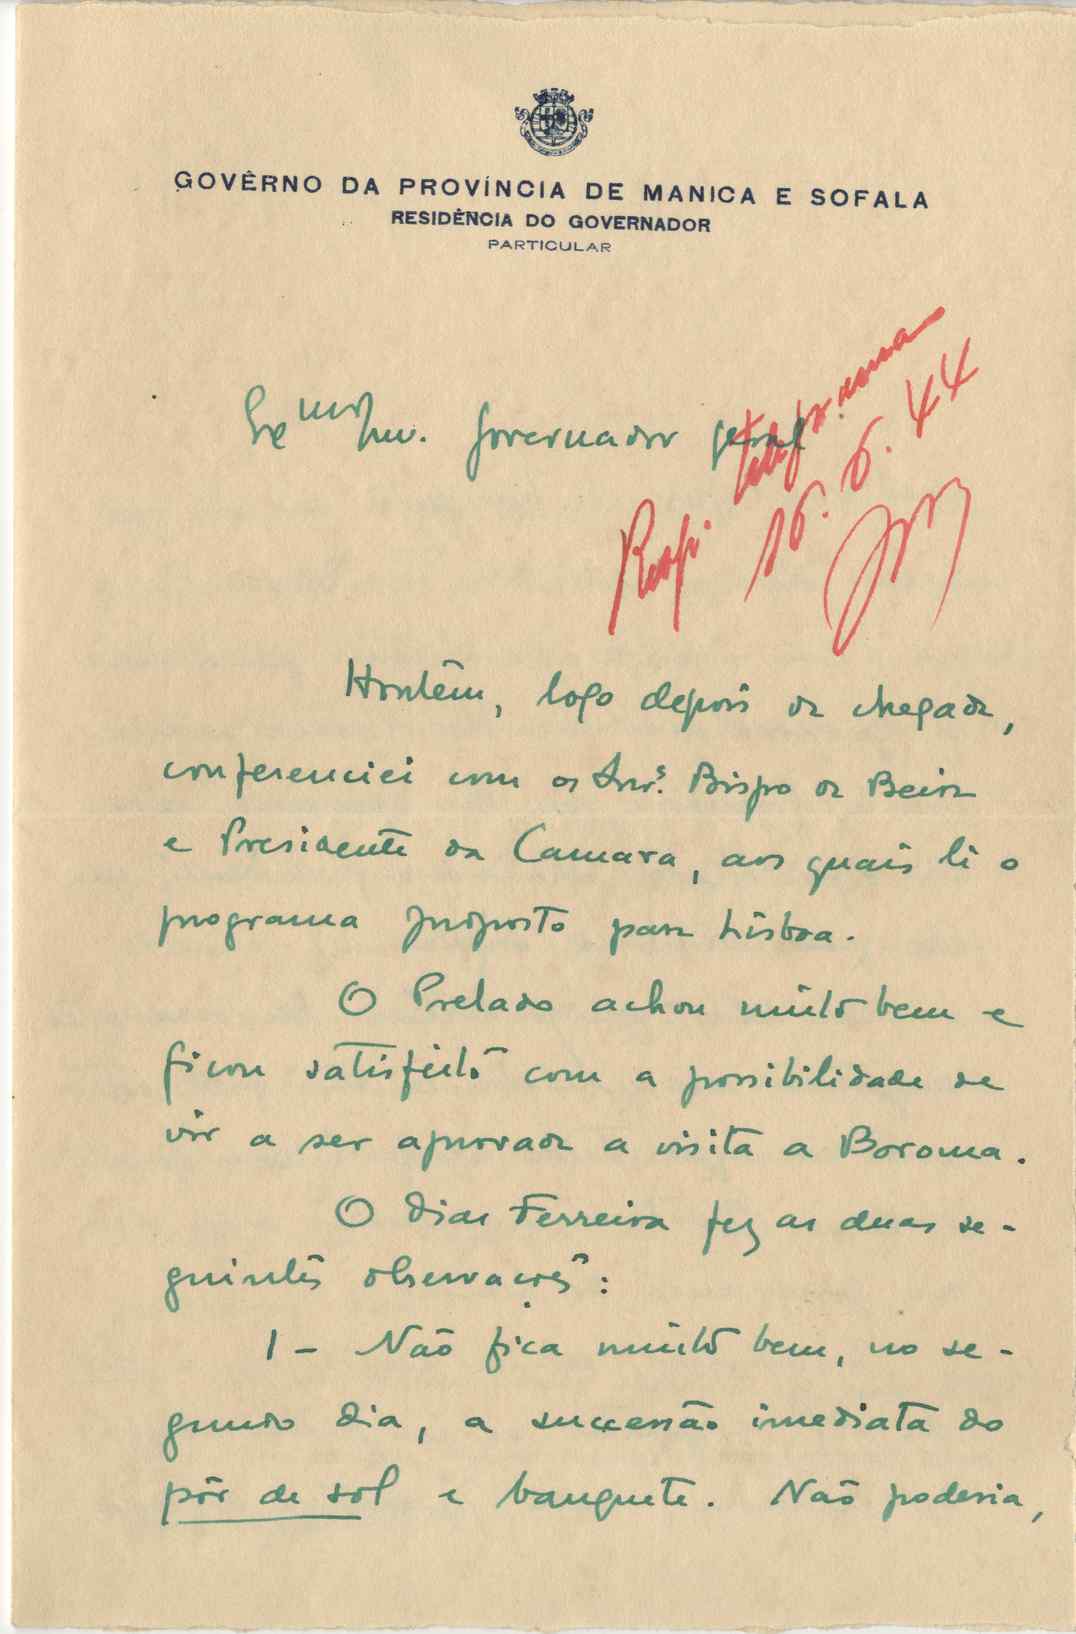 GOVÊRNO DA PROVÍNCIA DE MANICA E SOFALA
RESIDÊNCIA DO GOVERNADOR
PARTICULAR
Exmo Snr. Governador geral
Resp. telefonema
16.6.44
Hontêm, logo depois da chegada,
conferenciei com os Snrs. Bispo da Beira
e Presidente da Camara, aos quais li o
programa proposto para Lisboa.
O Prelado achou muito bem e
ficou satisfeito com a possibilidade de
vir a ser aprovada a visita a Boroma.
O Dias Ferreira fez as duas se-
guintes observações:
1 - Não fica muito bem, no se-
gundo dia, a sucessão imediata do
pôr de sol e banquete. Não poderia,